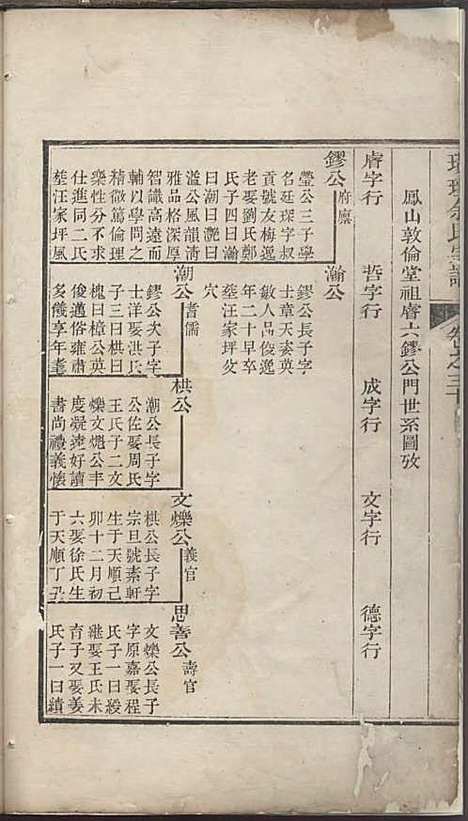 余氏宗譜
鳳山敦倫堂祖膺六鏐公門世系圖攷
膺字行
哲字行
成字行
文字行
德字行
鏐公 府廩
瑩公三子學
名廷琛字叔
貢號友梅逸
老娶劉氏鄭
氏子四曰瀚
曰潮曰灔曰
濫公風韻清
雅品格深厚
智識高遠而
輔以學問之
精微篤倫理
樂性分不求
仕進同二氏
塟汪家坪風
瀚公
鏐公長子字
士章天姿英
敏人品俊逸
年二十早卒
塟汪家坪攵
穴
潮公 耆儒
鏐公次子字
士洋娶洪氏
子三曰栱曰
槐曰樟公英
俊邁俗雍肅
多儀享年耄
栱公
潮公長子字
公佐娶周氏
王氏子二文
爍文熜公丰
度凝逹好讀
書尚禮義懷
文爍公 義官
栱公長子字
宗旦號素軒
生于天順己
卯十二月初
六娶徐氏生
于天順丁丑
思善公 壽官
文爍公長子
字原嘉娶程
氏子一曰緞
継娶王氏未
育子又娶姜
氏子一曰績